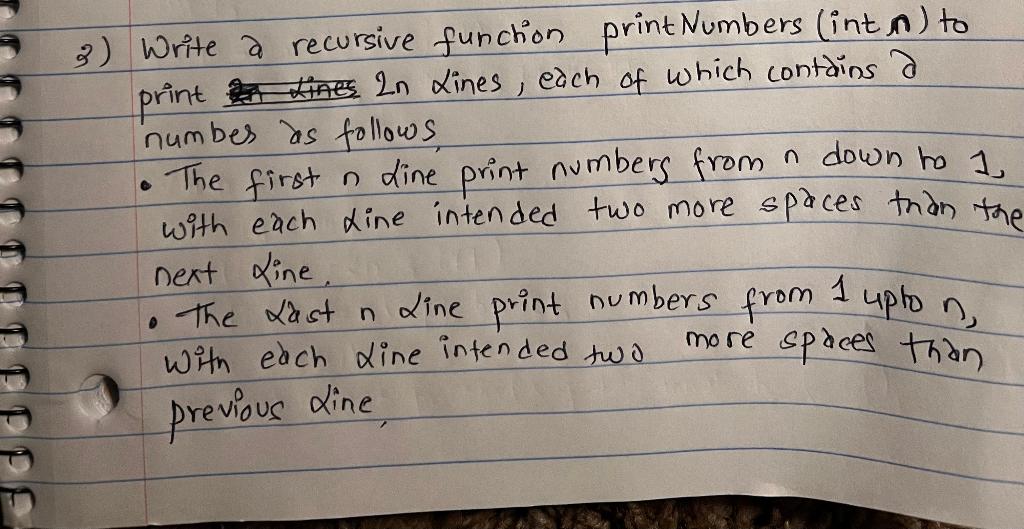 3) Write a recursive function printNumbers (int n) to
print 2n lines, each of which contains a
number as follows
• The first n line print numbers from n down to 1,
with each line intended two more spaces than the
next line.
• The last n line print numbers from 1 upto n,
with each line intended two more spaces than
previous line,